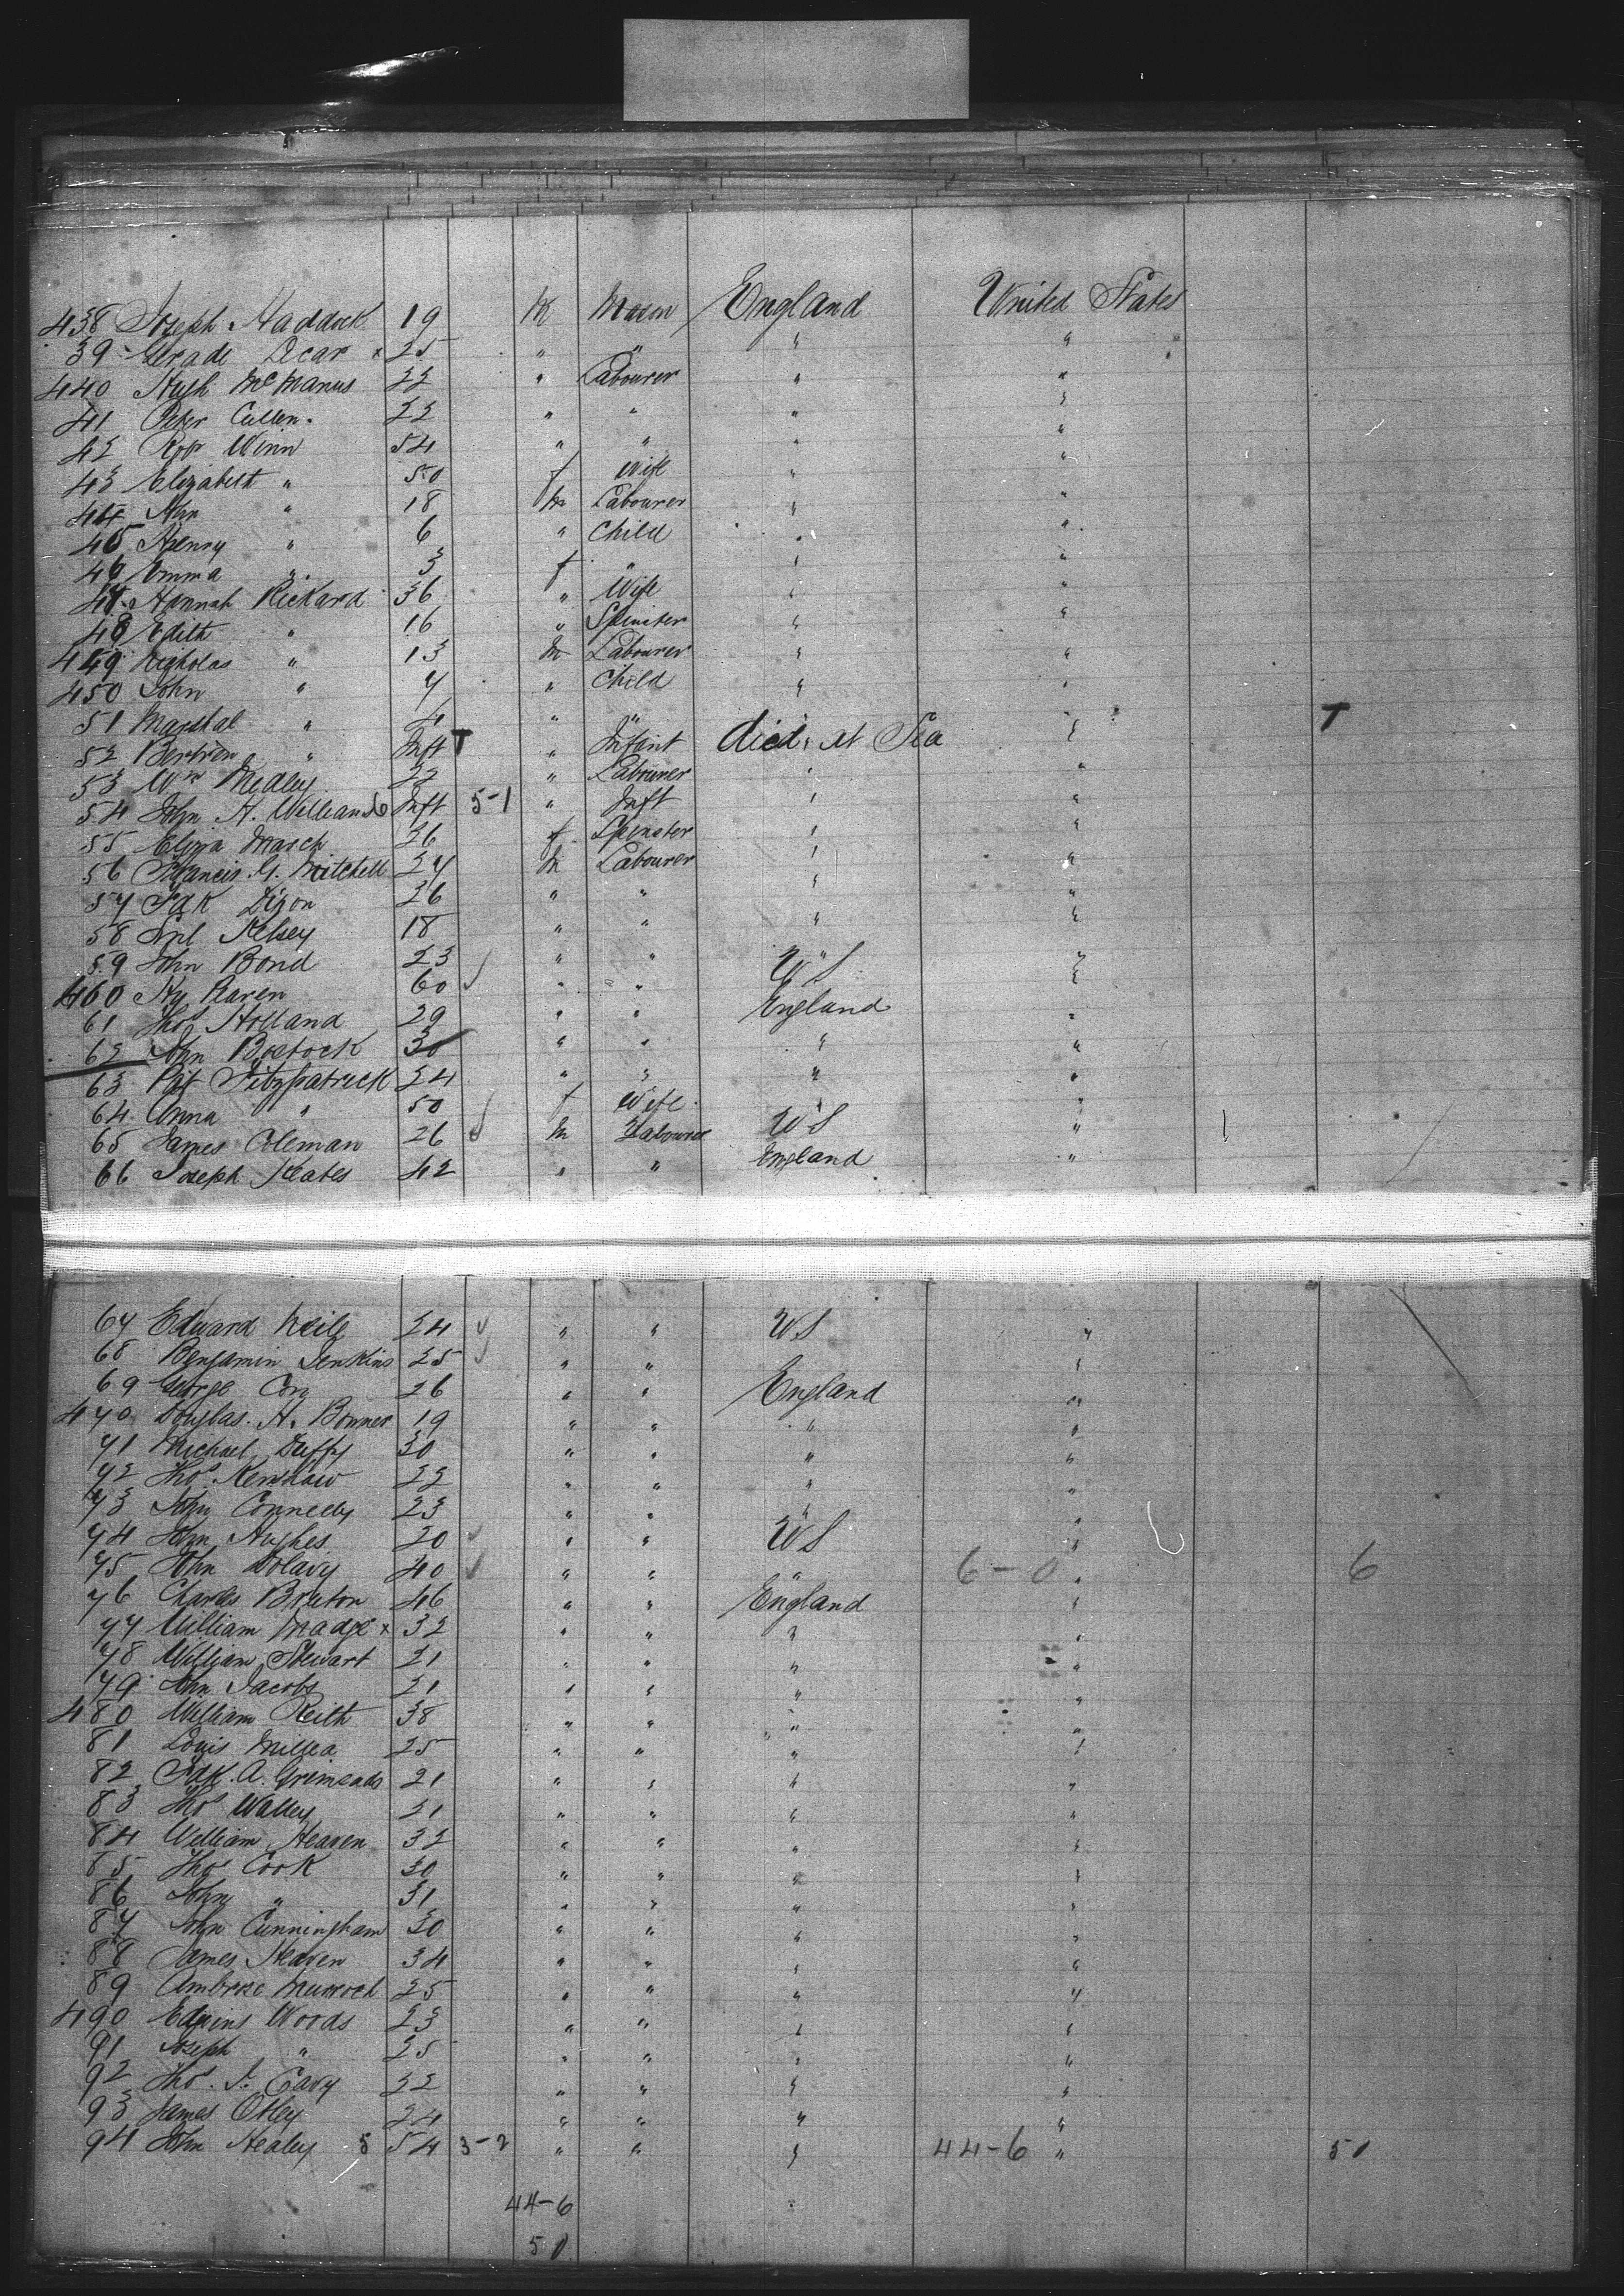 438 Joseph Haddock 19 M Mason England United States
39 Decar x 25 " " " "
440 Hugh McManus 22 " Labourer " "
41 Peter Cullen 22 " " " "
42 Winn 54 " " " "
43 Elizabeth " 50 f Wife " "
44 " 18 m Labourer " "
45 Henry " 6 " Child " "
46 Emma " 3 f " " "
47 Hannah Rickard 36 " Wife " "
48 Edith " 16 " Spinster " "
449 Nicholas " 13 m Labourer " "
450 John " 7 " Child " "
51 Marshal " 4 " " "
52 " Inft T " Infant died at Sea " T
53 Wm Medley 22 " Labourer " "
54 John H. Inft 5-1 " Inft " "
55 Eliza March 26 f Spinster " "
56 Francis G. Mitchell 27 m Labourer " "
57 Fdk Dixon 26 " " " "
58 Kelsey 18 " " " "
59 John Bond 23 " " " "
460 Hy 60 ✓ " " US "
61 Thos Holland 29 " " England "
62 John Bostock 30 " " " "
63 Pat Fitzpatrick 24 " " " "
64 Anna " 50 f Wife " "
65 James Coleman 26 ✓ m Labourer US "
66 Joseph Keates 42 " " England "
67 Edward Neile 24 ✓ " " US "
68 Benjamin Jenkins 25 ✓ " " "
69 George 26 " " England "
470 Douglas. H. Bonner 19 " " " "
71 Michael Duffy 30 " " " "
72 Thos Kershaw 22 " " " "
73 John Connelly 23 " " " "
74 John Hughes 20 ✓ " " US "
75 John 40 ✓ " " " 6-0 " 6
76 Charles 46 " " England "
77 William Madge x 32 " " " "
78 William Stewart 21 " " " "
79 John Jacobs 21 " " " "
480 William Keith 38 " " " "
81 Louis 25 " " " "
82 Fdk. A. 21 " " " "
83 Thos Walley 21 " " " "
84 William Heaven 32 " " " "
85 Thos Cook 30 " " " "
86 John " 31 " " " "
87 John Cunningham 30 " " " "
88 James Heaven 34 " " " "
89 Ambrose 25 " " " "
490 Woods 23 " " " "
91 Joseph " 25 " " " "
92 Thos. 22 " " " "
93 James Otley 24 " " " "
94 John Healey 5 54 3-2 " " " 44-6 " 50
44-6
50